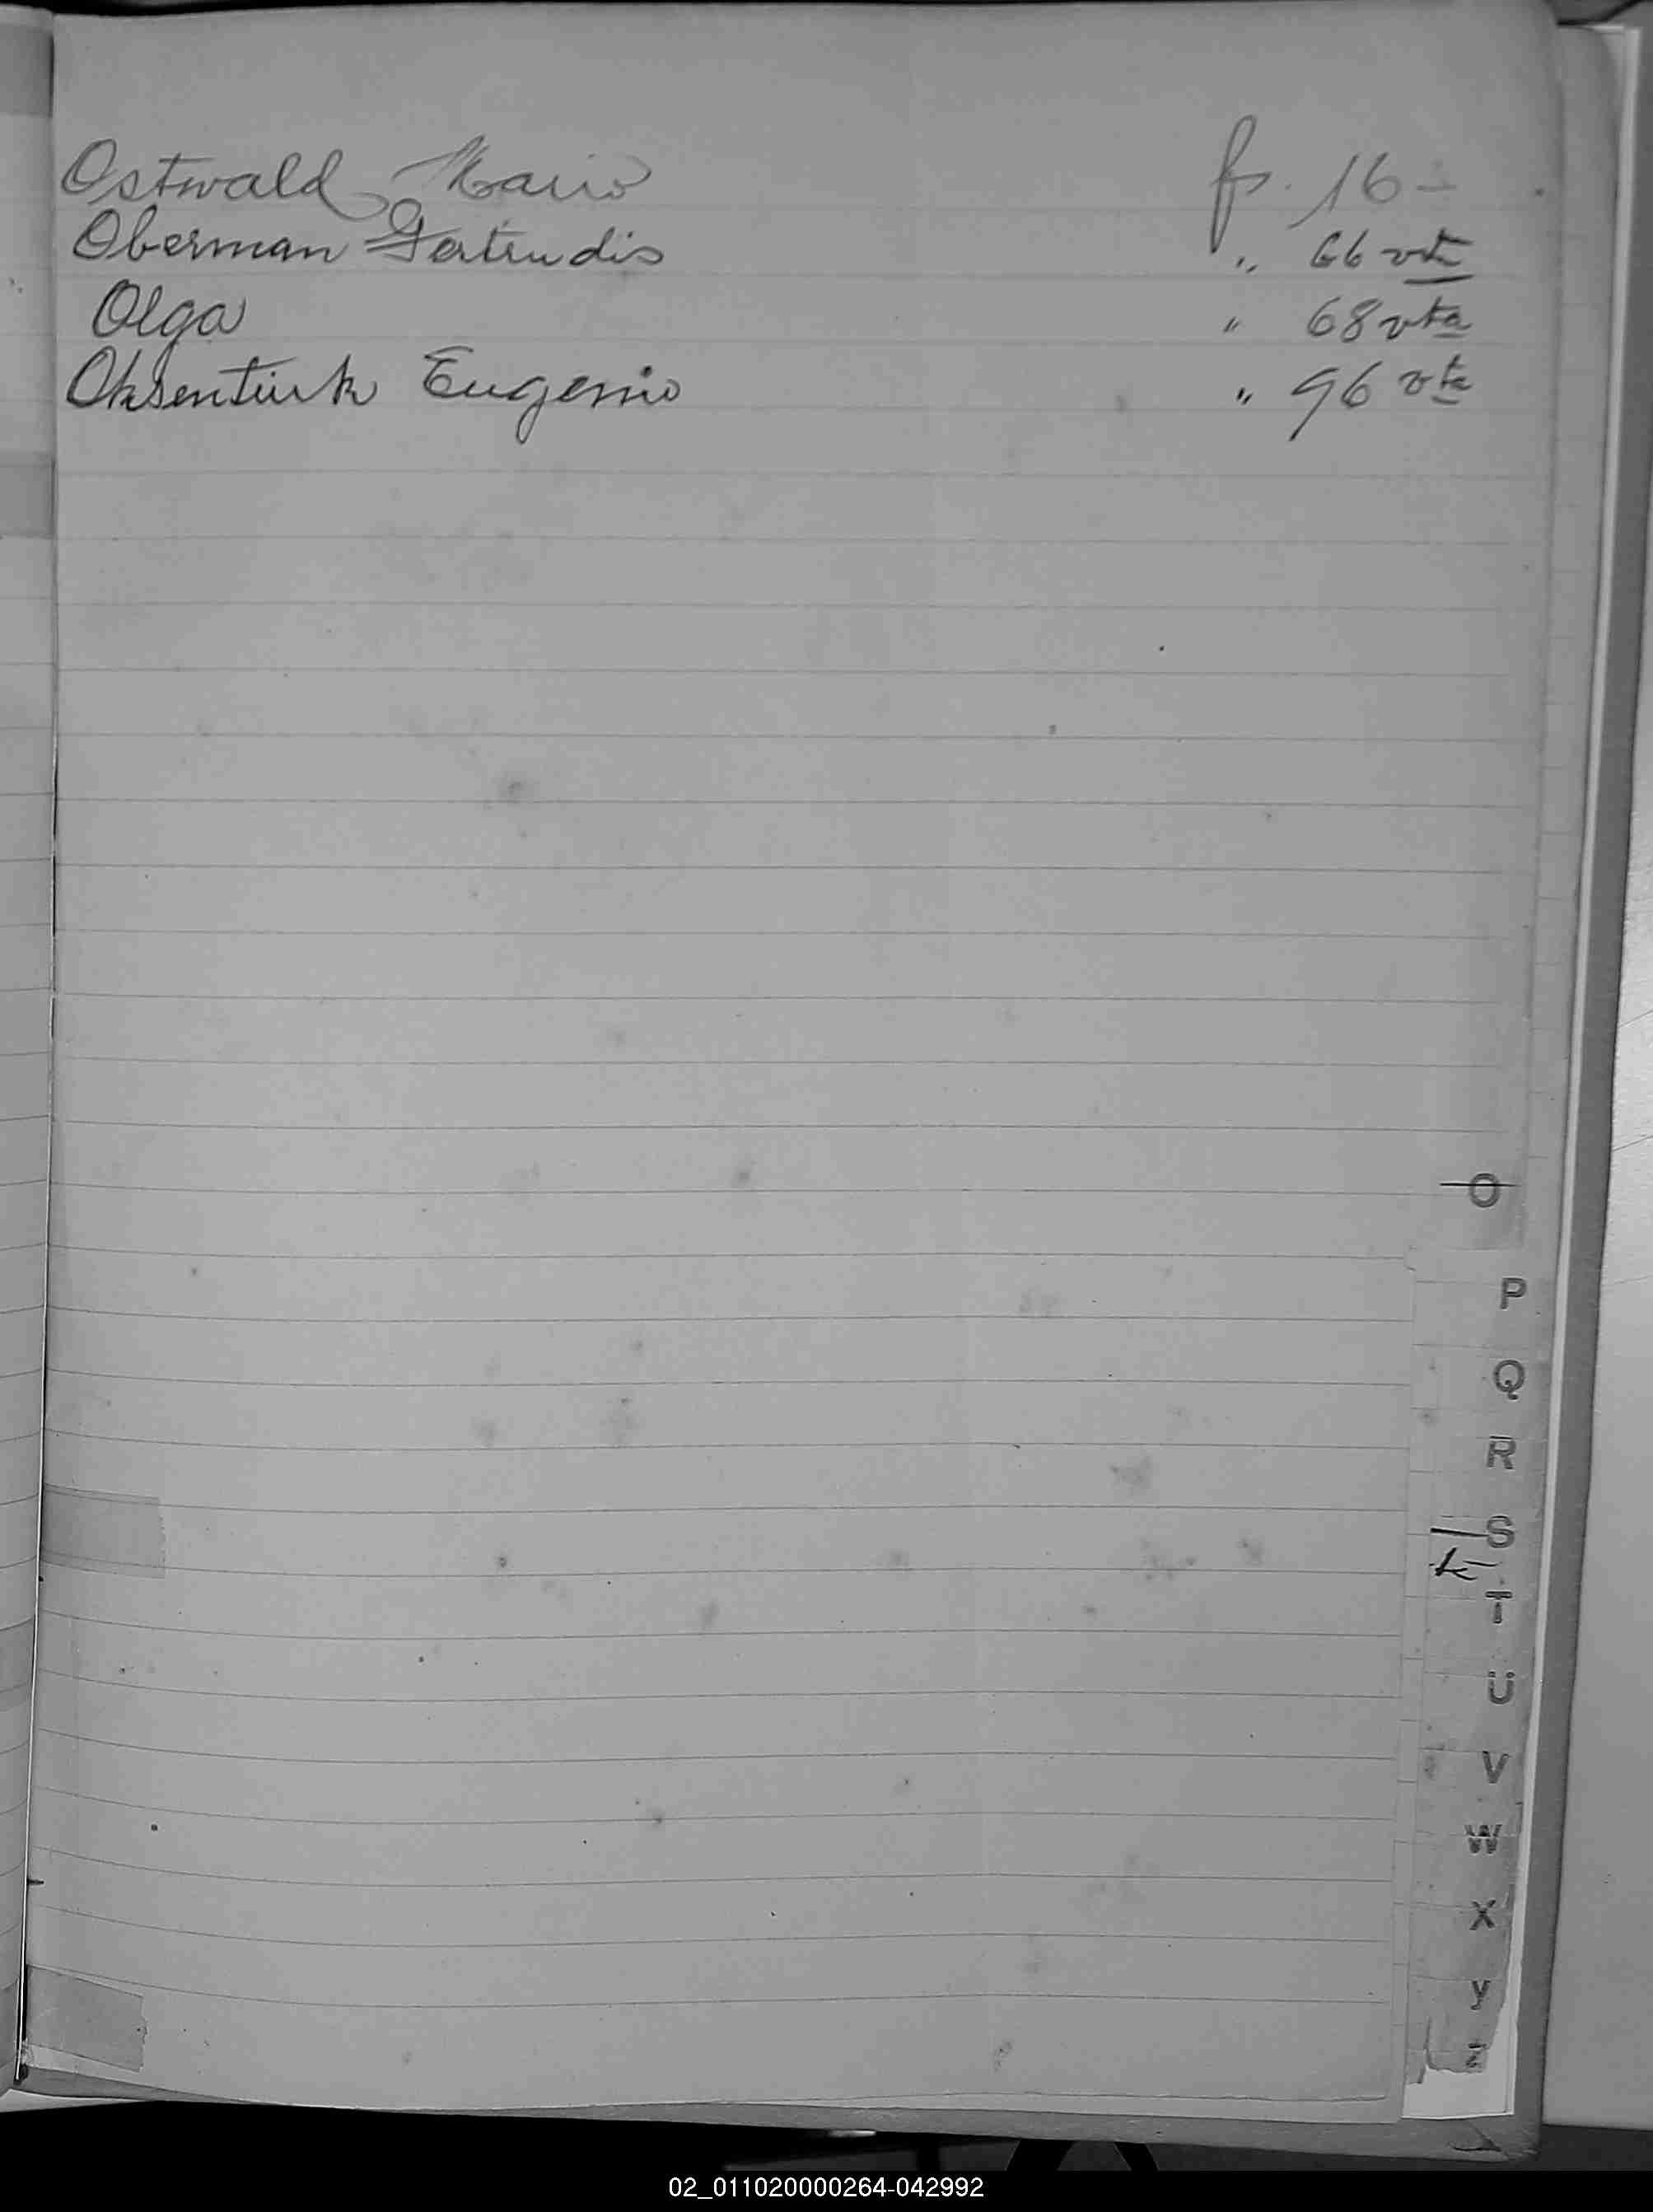 Ostwald Mario fs. 16-
Oberman Gertrudis " 66 vta
Olga " 68 vta
Oksentiuk Eugenio " 96 vta
O
P
Q
R
S
T
U
V
W
X
y
z
02_011020000264-042992